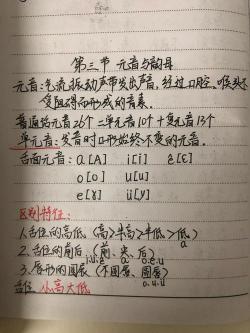 第三节 元音与韵母
元音:气流振动声带发出声音,经过口腔、喉头不
受阻碍而形成的音素。
普通话元音26个=单元音10个+复元音13个
单元音:发音时口形始终不变的元音。
舌面元音:a[A] i[i] ê[ɛ]
o[o] u[u]
e[ɤ] ü[y]
区别特征:
1.舌位的高低(高>半高>半低>低)
a
2.舌位的前后(前、央、后)
i.ü.ê a o.e.u
3.唇形的圆展(不圆唇、圆唇)
o.u.ü
舌位 从高大低